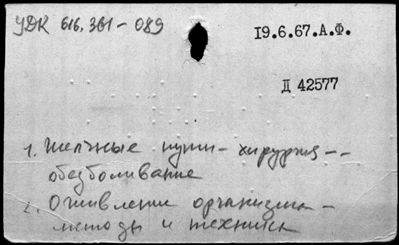 УДК 616.361-089
19.6.67.А.Ф.
Д 42577
1. Желчные пути - хирургия --
обезболивание
2. Оживление организма -
методы и техника